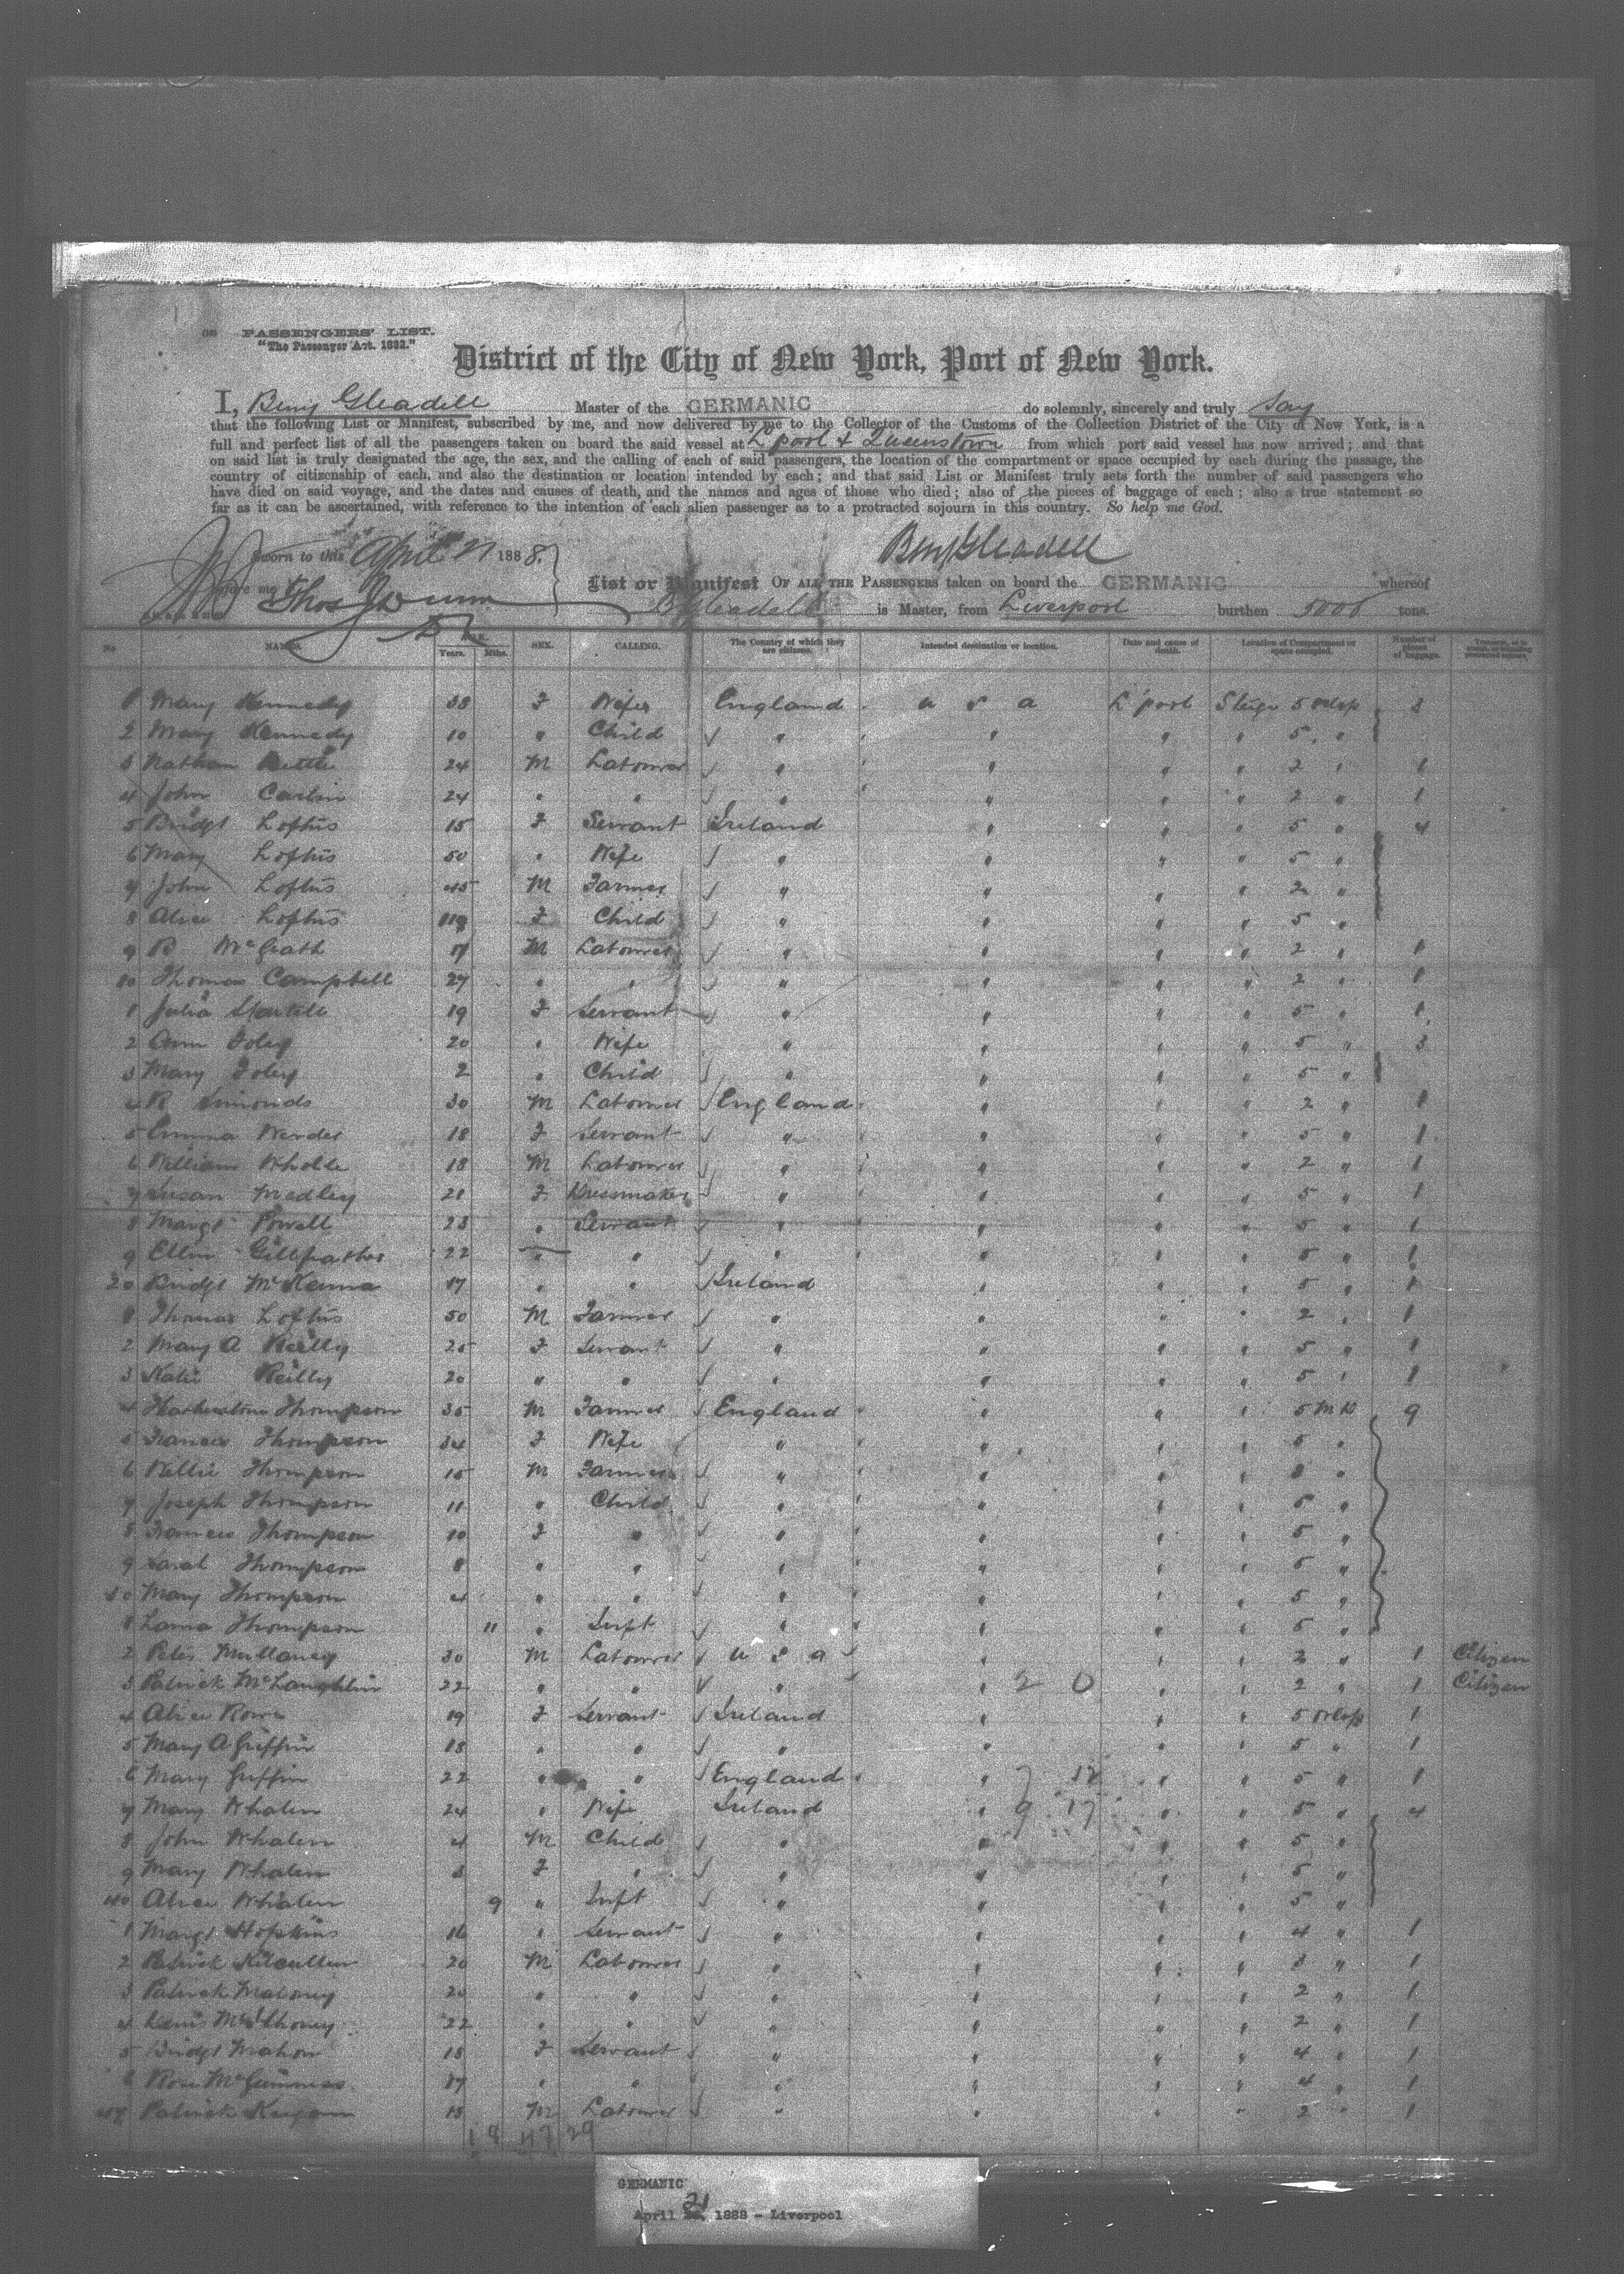 PASSENGERS' LIST.
"The Passenger Act. 1882."
District of the City of New York, Port of New York.
I, Benj Gleadell Master of the GERMANIC do solemnly, sincerely and truly Say
that the following List or Manifest, subscribed by me, and now delivered by me to the Collector of the Customs of the Collection District of the City of New York, is a
full and perfect list of all the passengers taken on board the said vessel at L'pool & Queenstown from which port said vessel has now arrived; and that
on said list is truly designated the age, the sex, and the calling of each of said passengers, the location of the compartment or space occupied by each during the passage, the
country of citizenship of each, and also the destination or location intended by each; and that said List or Manifest truly sets forth the number of said passengers who
have died on said voyage, and the dates and causes of death, and the names and ages of those who died; also of the pieces of baggage of each; also a true statement so
far as it can be ascertained, with reference to the intention of each alien passenger as to a protracted sojourn in this country. So help me God.
Sworn to this April 21 1888. Benj Gleadell
before me Thos
List or Manifest OF ALL THE PASSENGERS taken on board the GERMANIC whereof
B Gleadell is Master, from Liverpool burthen 5008 tons.
No NAMES. AGE. Years. Mths. SEX. CALLING. The Country of which they are citizens. Intended destination or location. Date and cause of death. Location of Compartment or space occupied. Number of pieces of baggage.
1 Mary Kennedy 38 F Wife England U S A L'pool Stege 5 Orlop 3
2 Mary Kennedy 10 " Child " " " " 5 "
3 Nathan 24 M Labourer " " " " 2 " 1
4 John Carlin 24 " " " " " " 2 " 1
5 Bridgt Loftus 15 F Servant Ireland " " " 5 " 4
6 Mary Loftus 50 " Wife " " " " 5 "
7 John Loftus 45 M Farmer " " " " 2 "
8 Alice Loftus F Child " " " " 5 "
9 R McGrath 17 M Labourer " " " " 2 " 1
10 Thomas Campbell 27 " " " " " " 2 " 1
1 Julia 19 F Servant " " " " 5 " 1
2 Ann Foley 20 " Wife " " " " 5 " 3
3 Mary Foley 2 " Child " " " " 5 "
4 R Simonds 30 M Labourer England " " " 2 " 1
5 Emma 18 F Servant " " " " 5 " 1
6 William 18 M Labourer " " " " 2 " 1
7 Susan Medley 21 F Dressmaker " " " " 5 " 1
8 Margt Powell 23 " Servant " " " " 5 " 1
9 Ellen 22 " " " " " " 5 " 1
20 Bridgt McKenna 17 " " Ireland " " " 5 " 1
1 Thomas Loftus 50 M Farmer " " " " 2 " 1
2 Mary A Reilly 25 F Servant " " " " 5 " 1
3 Katie Reilly 20 " " " " " " 5 " 1
4 Thompson 35 M Farmer England " " " 5 9
5 Frances Thompson 34 F Wife " " " " 5 "
6 Thompson 15 M Farmer " " " " "
7 Joseph Thompson 11 " Child " " " " 5 "
8 Frances Thompson 10 F " " " " " 5 "
9 Sarah Thompson 8 " " " " " " 5 "
30 Mary Thompson 4 " " " " " " 5 "
1 Thompson 11 " Inft " " " " 5 "
2 Peter Mullaney 30 M Labourer U S A " " " 2 " 1 Citizen
3 Patrick McLaughlin 22 " " " " 20 " " 2 " 1 Citizen
4 Alice Rowe 19 F Servant Ireland " " " 5 Orlop 1
5 Mary A Griffin 18 " " " " " " 5 " 1
6 Mary Griffin 22 " " England " " " 5 " 1
7 Mary Whalen 24 " Wife Ireland " 9 17 " " 5 " 4
8 John Whalen 4 M Child " " " " 5 "
9 Mary Whalen 3 F " " " " " 5 "
40 Alice Whalen 9 " Inft " " " " 5 "
1 Margt Hopkins 16 " Servant " " " " 4 " 1
2 Patrick Kilcullen 20 M Labourer " " " " 3 " 1
3 Patrick Maloney 20 " " " " " " 2 " 1
4 22 " " " " " " 2 " 1
5 Bridgt Mahon 18 F Servant " " " " 4 " 1
6 Rose McGuinness 17 " " " " " " 4 " 1
47 Patrick 18 M Labourer " " " " 2 " 1
GERMANIC
April 21, 1888 - Liverpool